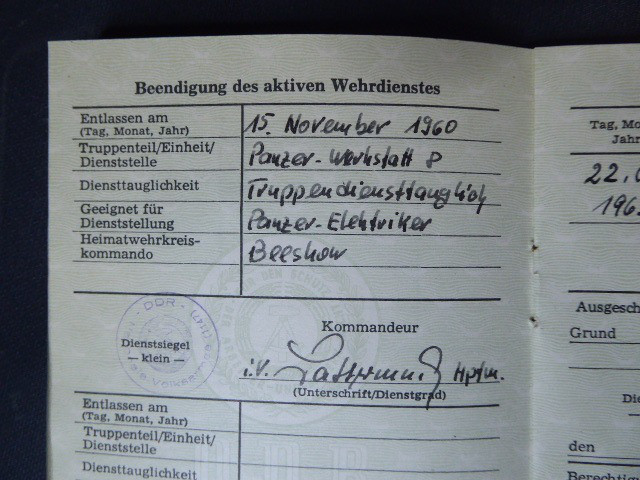 Beendigung des aktiven Wehrdienstes
Entlassen am 15. November 1960
(Tag, Monat, Jahr)
Truppenteil/Einheit/ Panzer-Werkstatt 8
Dienststelle
Diensttauglichkeit Truppendiensttauglich
Geeignet für Panzer-Elektriker
Dienststellung
Heimatwehrkreis- Beeskow
kommando
Kommandeur
DDR
Dienstsiegel
— klein —
i.V. Hptm.
(Unterschrift/Dienstgrad)
Entlassen am
(Tag, Monat, Jahr)
Truppenteil/Einheit/
Dienststelle
Diensttauglichkeit
Tag, Mo
Jahr
22.
196
Ausgesch
Grund
Die
den
Berechtig